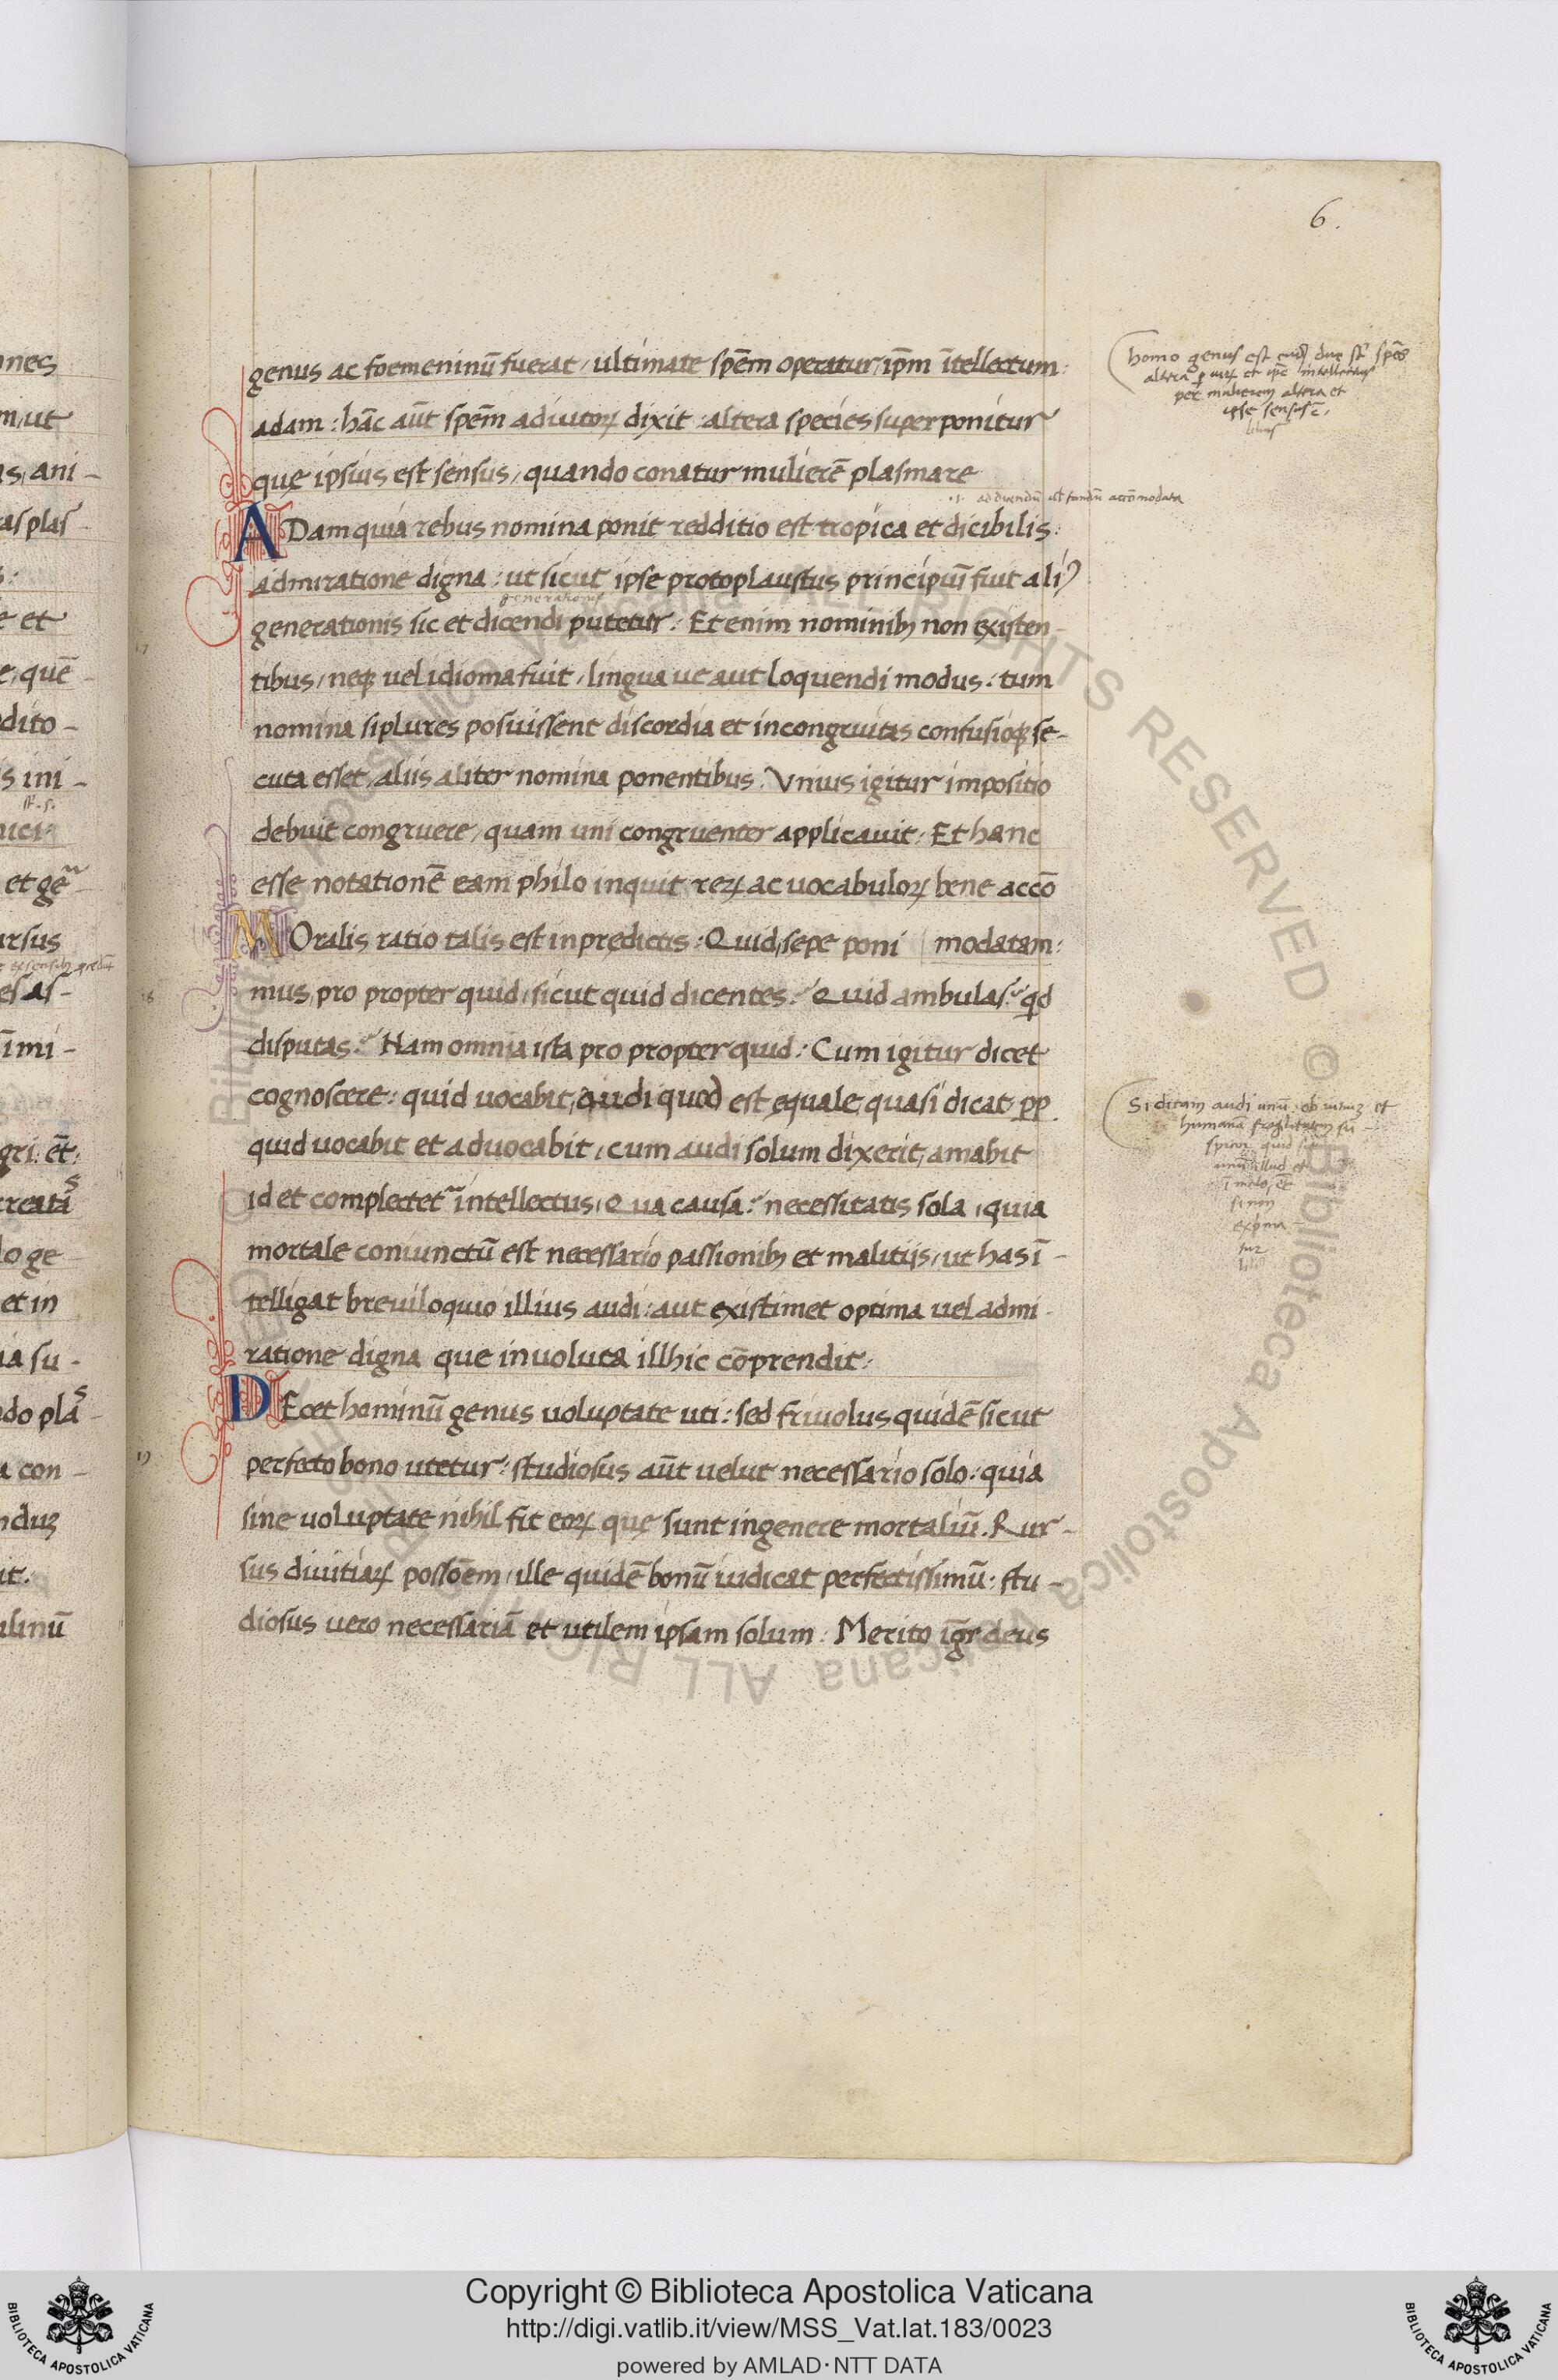 6.
genus ac foemeninū fuerat, ultimate spēm operatur, ip̄m ītellectum:
adam: hāc aūt spēm adiutoꝝ dixit: altera species superponitur
quę ipsius est sensus, quando conatur mulierē plasmare
ADam quia rebus nomina ponit redditio est tropica et dicibilis:
admiratione digna: ut sicut ipse protoplaustus principiū fuit ali
generationis
generationis sic et dicendi putetur. Et enim nominibꝫ non existen-
tibus, neqꝫ uel idioma fuit, lingua ue aut loquendi modus: tum
nomina si plures posuissent discordia et incongruitas confusioqꝫ se-
cuta esset, aliis aliter nomina ponentibus. Vnius igitur impositio
debuit congruere, quam uni congruenter applicauit. Et hanc
esse notationē eam philo inquit reꝝ ac uocabuloꝝ bene accō
MOralis ratio talis est in prędictis: Quid, sępe poni modatam:
mus, pro propter quid, sicut quid dicentes. Quid ambulas? qd
disputas? Nam omnia ista pro propter quid: Cum igitur dicet
cognoscere: quid uocabit, audi quod est ęquale, quasi dicat pp
quid uocabit et aduocabit, cum audi solum dixerit, amabit
id et complectet intellectus, Qua causa? necessitatis sola, quia
mortale coniunctū est necessario passionibꝫ et malitijs, ut has ī-
telligat breuiloquio illius audi: aut existimet optima uel admi-
ratione digna que inuoluta illhic cōprendit:
DEcet hominū genus uoluptate uti: sed friuolus quidē sicut
perfecto bono utetur: studiosus aūt uelut necessario solo: quia
sine uoluptate nihil fit eoꝝ quę sunt in genere mortaliū. Rur-
sus diuitiaꝝ possōem, ille quidē bonū iudicat perfectissimū: stu-
diosus uero necessariā et utilem ipsam solum. Merito iḡr deus
homo genus est
altera et
per mulierem altera et
ipse sensus ē,
Si dicam audi unū
humanā fragilitatem
Copyright © Biblioteca Apostolica Vaticana
http://digi.vatlib.it/view/MSS_Vat.lat.183/0023
powered by AMLAD·NTT DATA
BIBLIOTECA APOSTOLICA VATICANA
BIBLIOTECA APOSTOLICA VATICANA